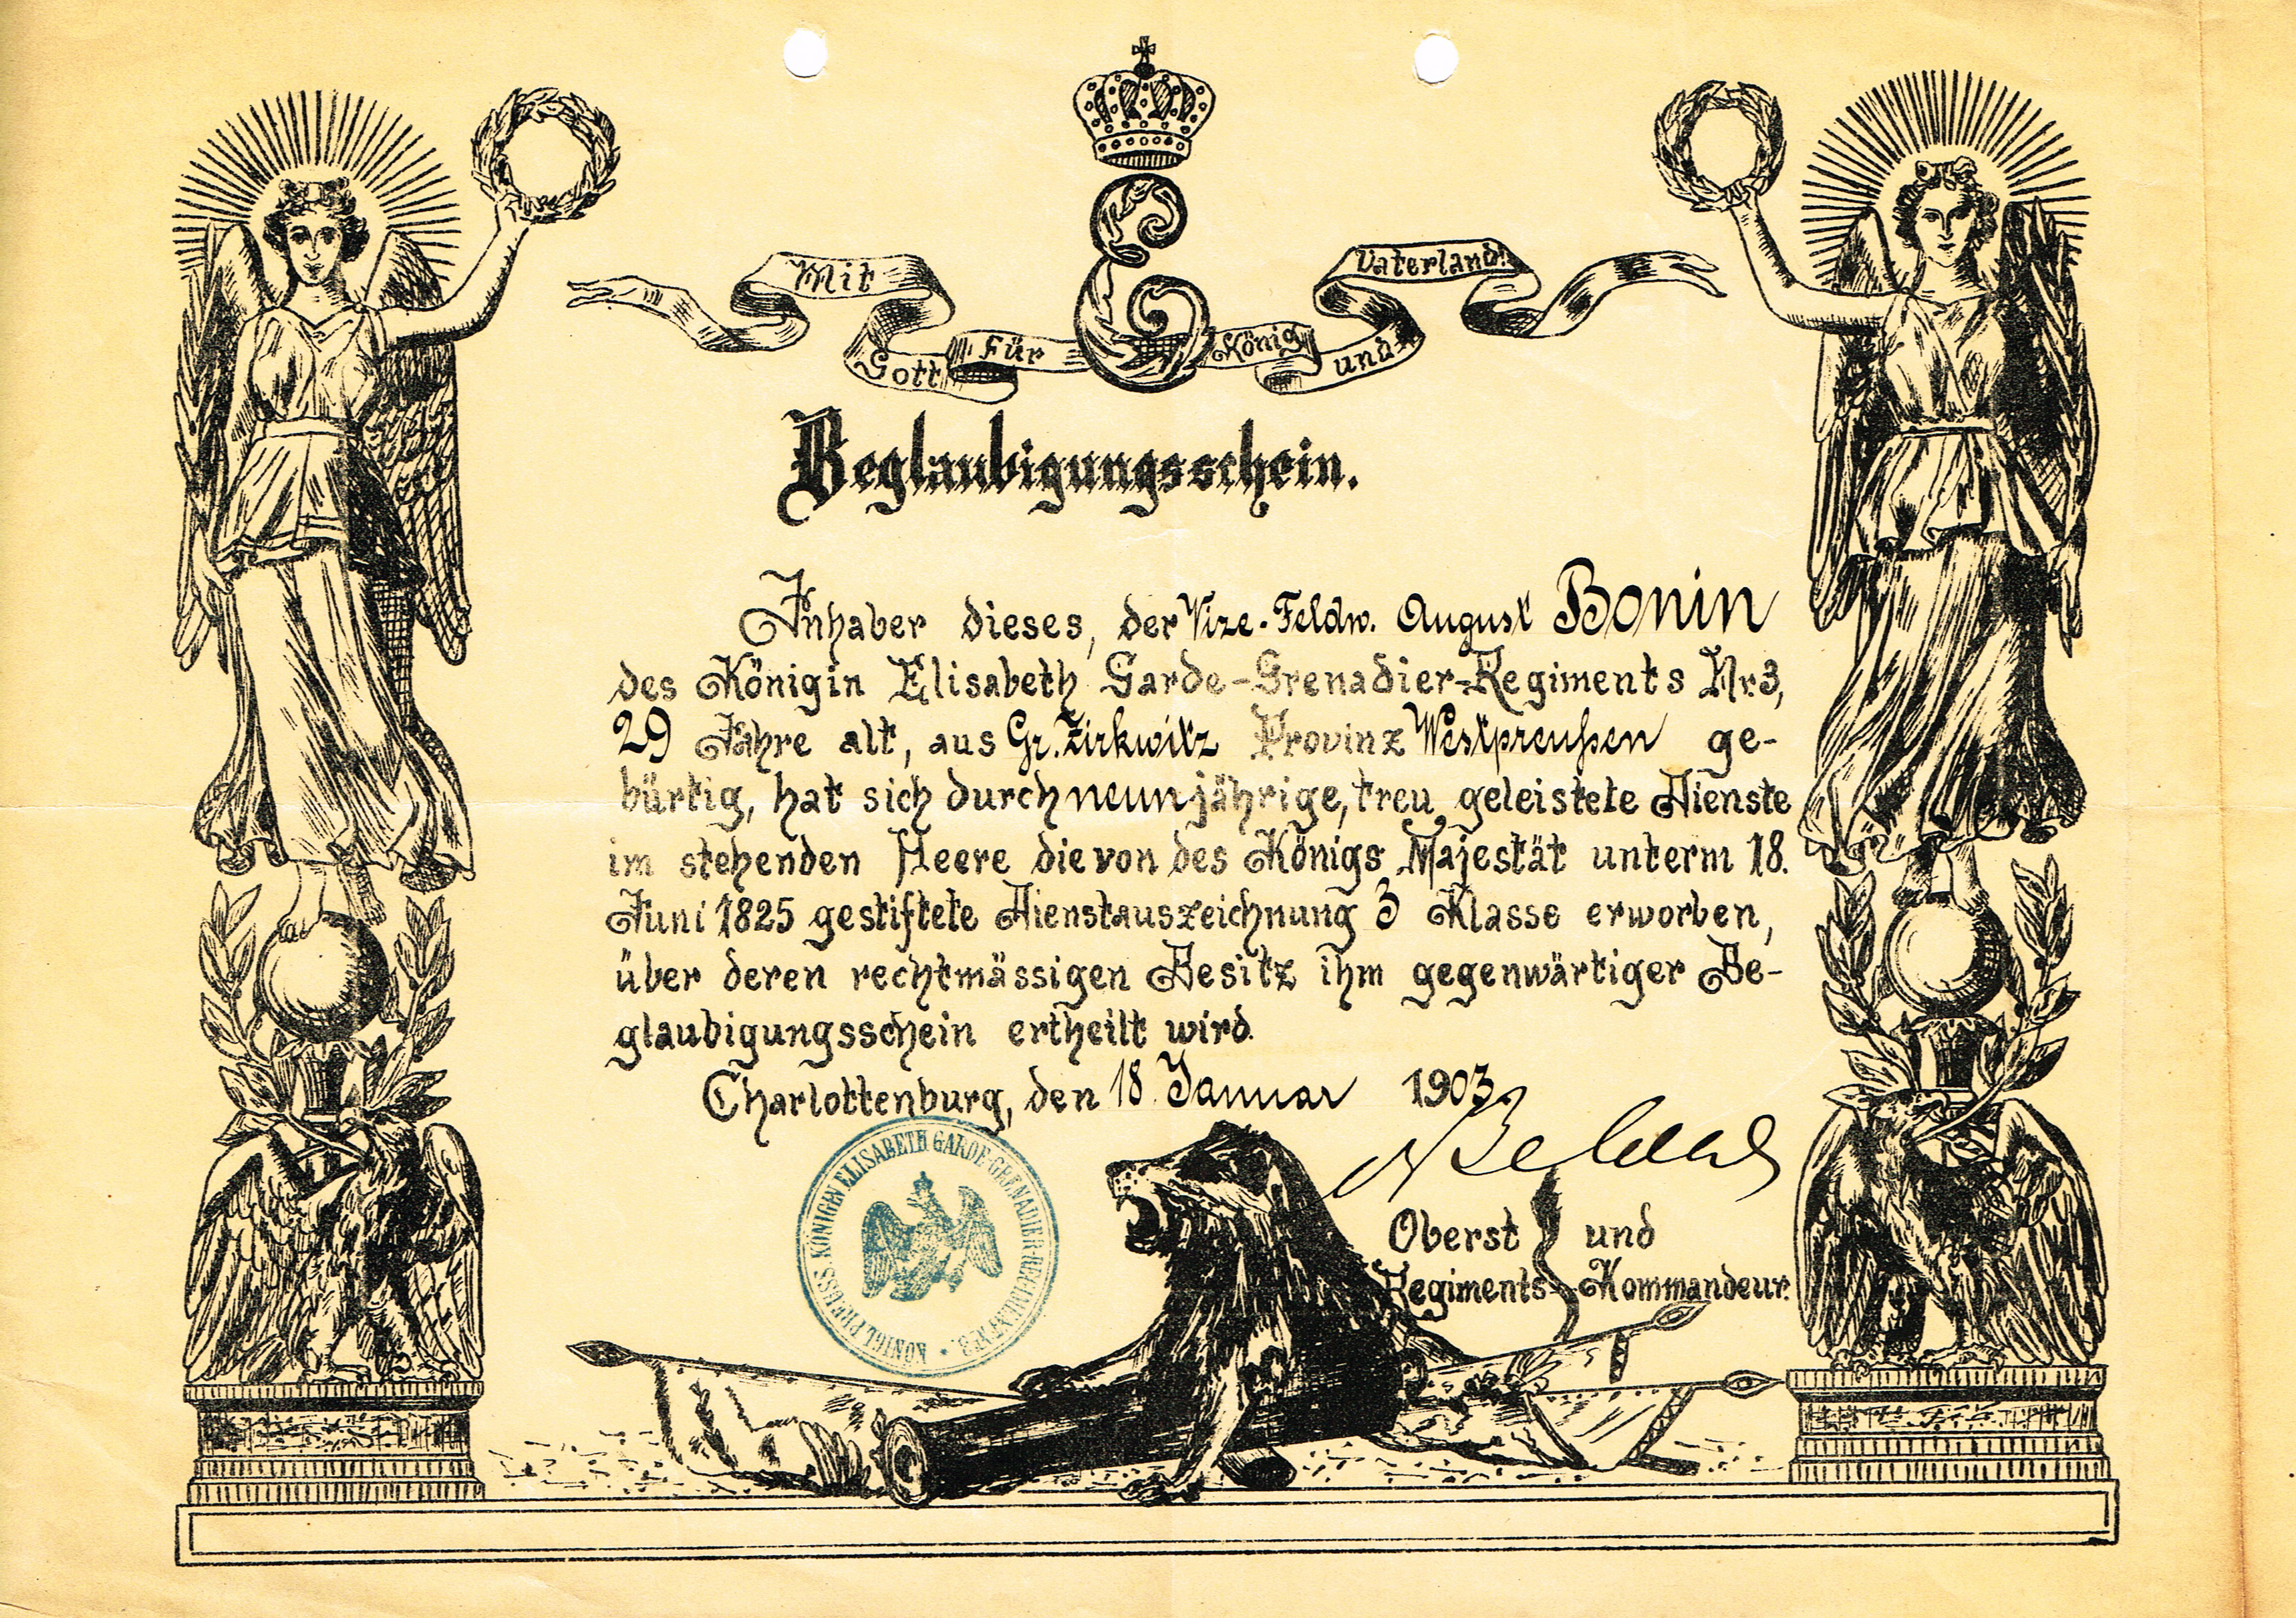 Mit Gott Für König und Vaterland!
Beglaubigungsschein.
Inhaber dieses, der Vize-Feldw. August Bonin
des Königin Elisabeth Garde-Grenadier-Regiments Nr. 3,
29 Jahre alt, aus Gr. Zirkwitz Provinz Westpreußen ge-
bürtig, hat sich durch neunjährige, treu geleistete Dienste
im stehenden Heere die von des Königs Majestät unterm 18.
Juni 1825 gestiftete Dienstauszeichnung 3 Klasse erworben,
über deren rechtmässigen Besitz ihm gegenwärtiger Be-
glaubigungsschein ertheilt wird.
Charlottenburg, den 18. Januar 1903.
Oberst und
Regiments-Kommandeur.
KÖNIGL. PREUSS. KÖNIGIN ELISABETH GARDE-GRENADIER-REGIMENT Nº 3.